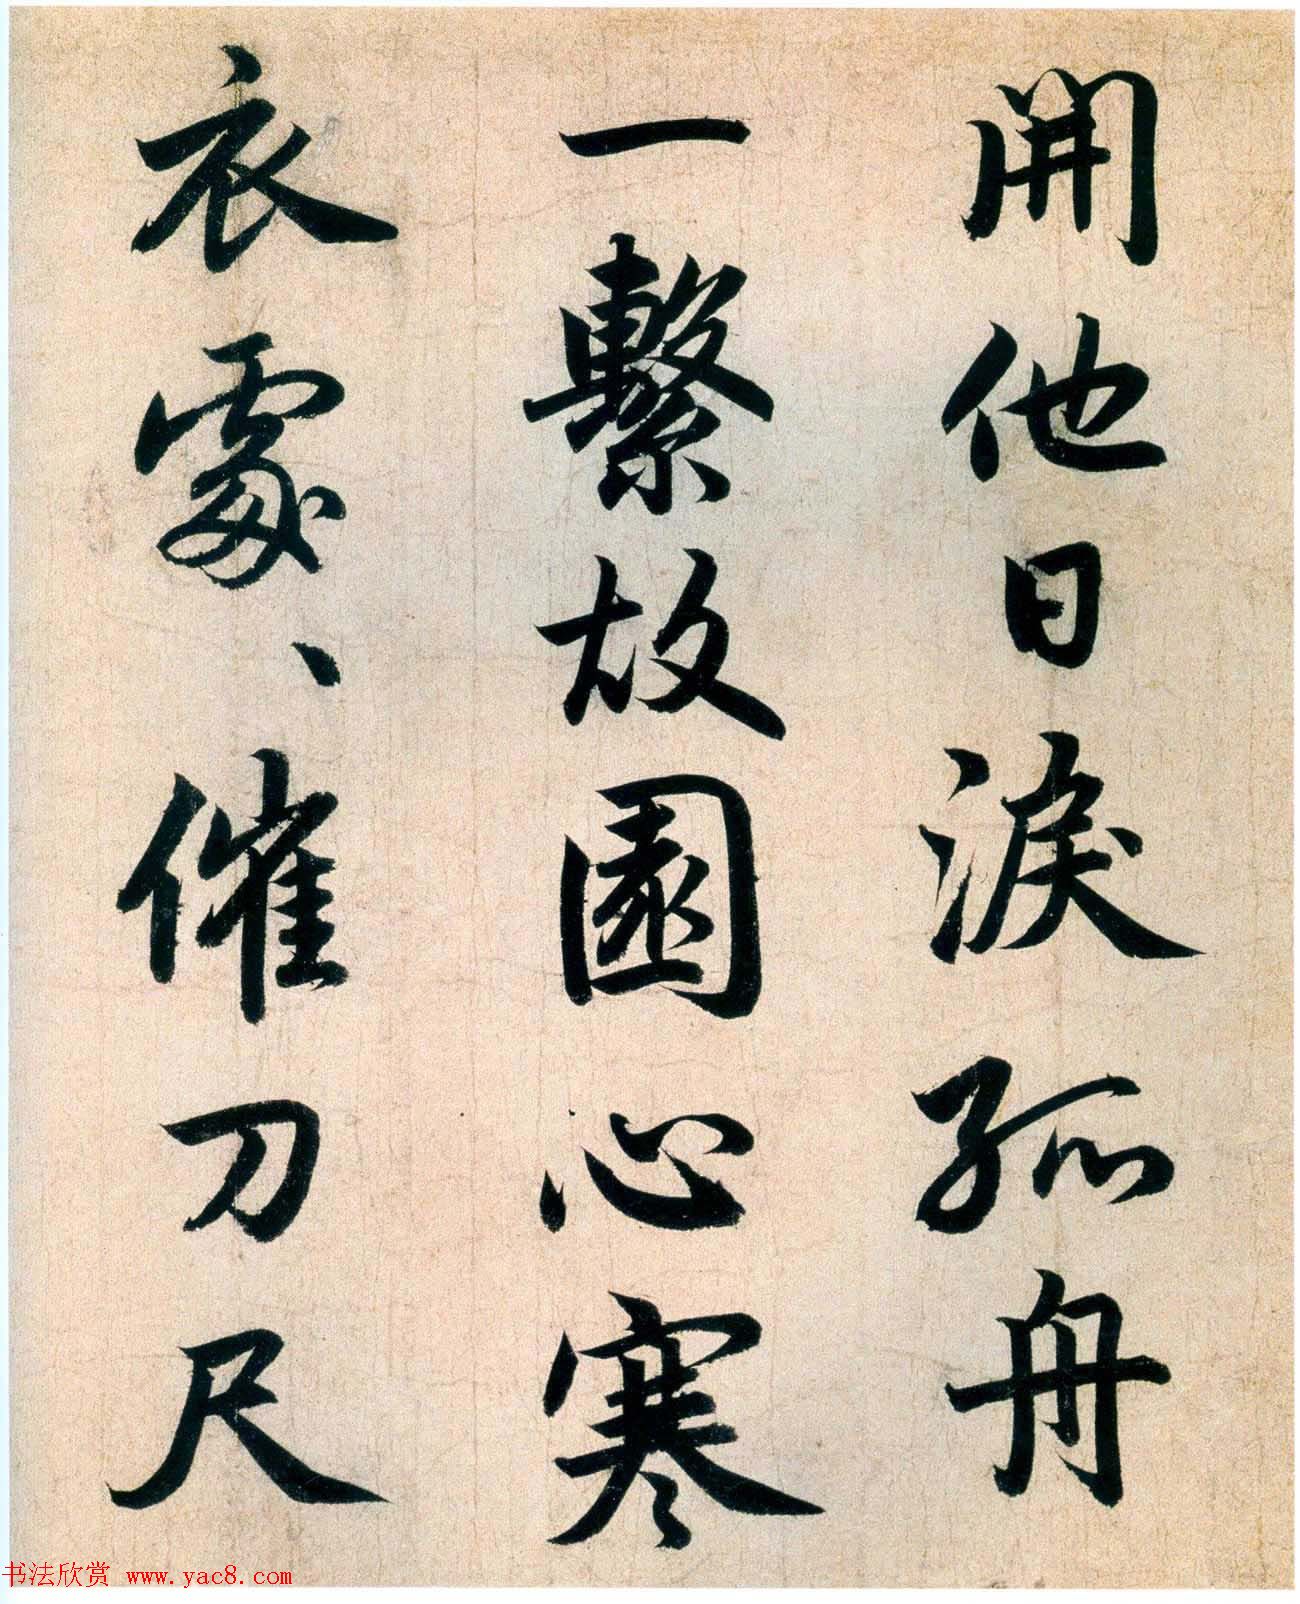 開他日淚孤舟
一繫故園心寒
衣處、催刀尺
书法欣赏 www.yac8.com